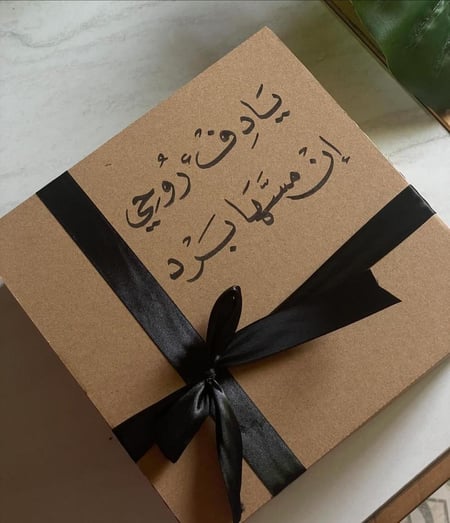 يَا دِفْء رُوحِي
إنْ مسَّهَا بَرَد